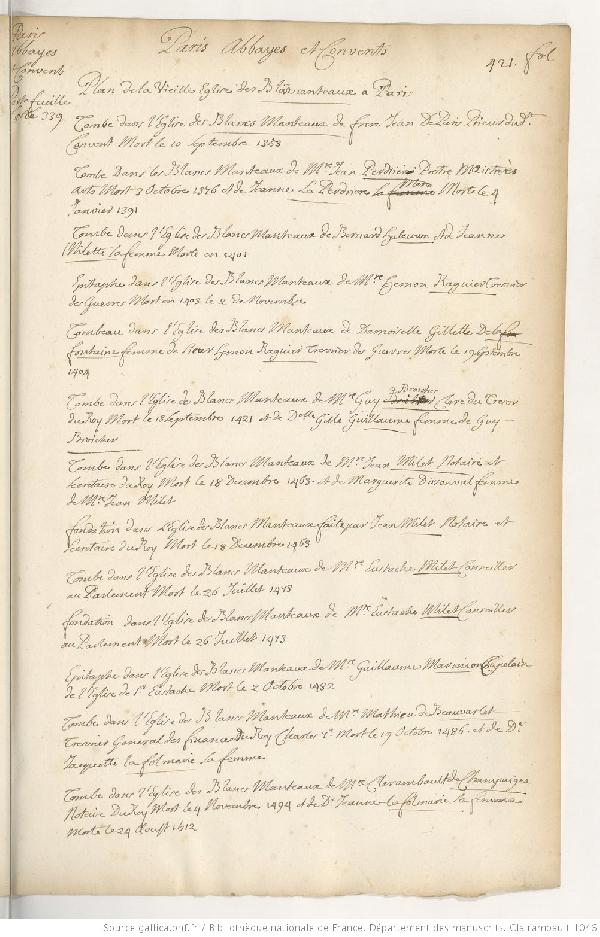 Paris Abbayes et Convents
421. fol.
Paris
Abbayes
Convent
Porte feuille
339
Plan de la Vieille Eglise des Blancmanteaux a Paris
Tombe dans l'Eglise des Blancs Manteaux de frere Jean De Prieur dud.
Convent Mort le 10 Septembre
Tombe Dans les Blancs Manteaux de Mre Jean Perdrier Prestre Maistre es
arts Mort 3 Octobre 1376 et de Jeanne La Perdriere sa Mere Morte le 4
Janvier 1391
Tombe dans l'Eglise des Blancs Manteaux de Bernard et de Jeanne
Milette sa femme Morte en 1401
Epitaphe dans l'Eglise des Blancs Manteaux de Mre Hemon Raguier Tresorier
des Guerres Mort en 1403 le 2 de Novembre
Tombeau dans l'Eglise des Blancs Manteaux de Damoiselle Gillette De la
fontaine femme de Sieur Hemon Raguier Tresorier des Guerres Morte le 19 Septembre
1404
Tombe dans l'Eglise des Blancs Manteaux de Mre Guy Brocher Clerc du Tresor
du Roy Mort le 13 Septembre 1421 et de Delle Gille Guillaume femme de Guy
Brocher
Tombe dans l'Eglise des Blancs Manteaux de Mre Jean Milet Notaire et
Secretaire du Roy Mort le 18 Decembre 1463 et de Marguerite femme
de Mre Jean Milet
fondation dans l'Eglise des Blancs Manteaux faite par Jean Milet Notaire et
Secretaire du Roy Mort le 18 Decembre 1463
Tombe dans l'Eglise des Blancs Manteaux de Mre Eustache Milet Conseiller
au Parlement Mort le 26 Juillet 1473
fondation dans l'Eglise des Blancs Manteaux de Mre Eustache Milet Conseiller
au Parlement Mort le 26 Juillet 1473
Epitaphe dans l'Eglise des Blancs Manteaux de Mre Guillaume Chapelain
de l'Eglise de St Eustache Mort le 2 Octobre 1482
Tombe dans l'Eglise des Blancs Manteaux de Mre Mathieu de Beauvarlet
Tresorier General des finances du Roy Charles Mort le 19 Octobre 1486 et de De
Jacquette la folmarie sa femme
Tombe dans l'Eglise des Blancs Manteaux de Mre Clerambault de Champaigne
Notaire Du Roy Mort le 4 Novembre 1494 et de De Jeanne la folmarie sa femme
Morte le 24 Aoust 1512
Source gallica.bnf.fr / Bibliothèque nationale de France. Département des manuscrits. Clairambault 1046